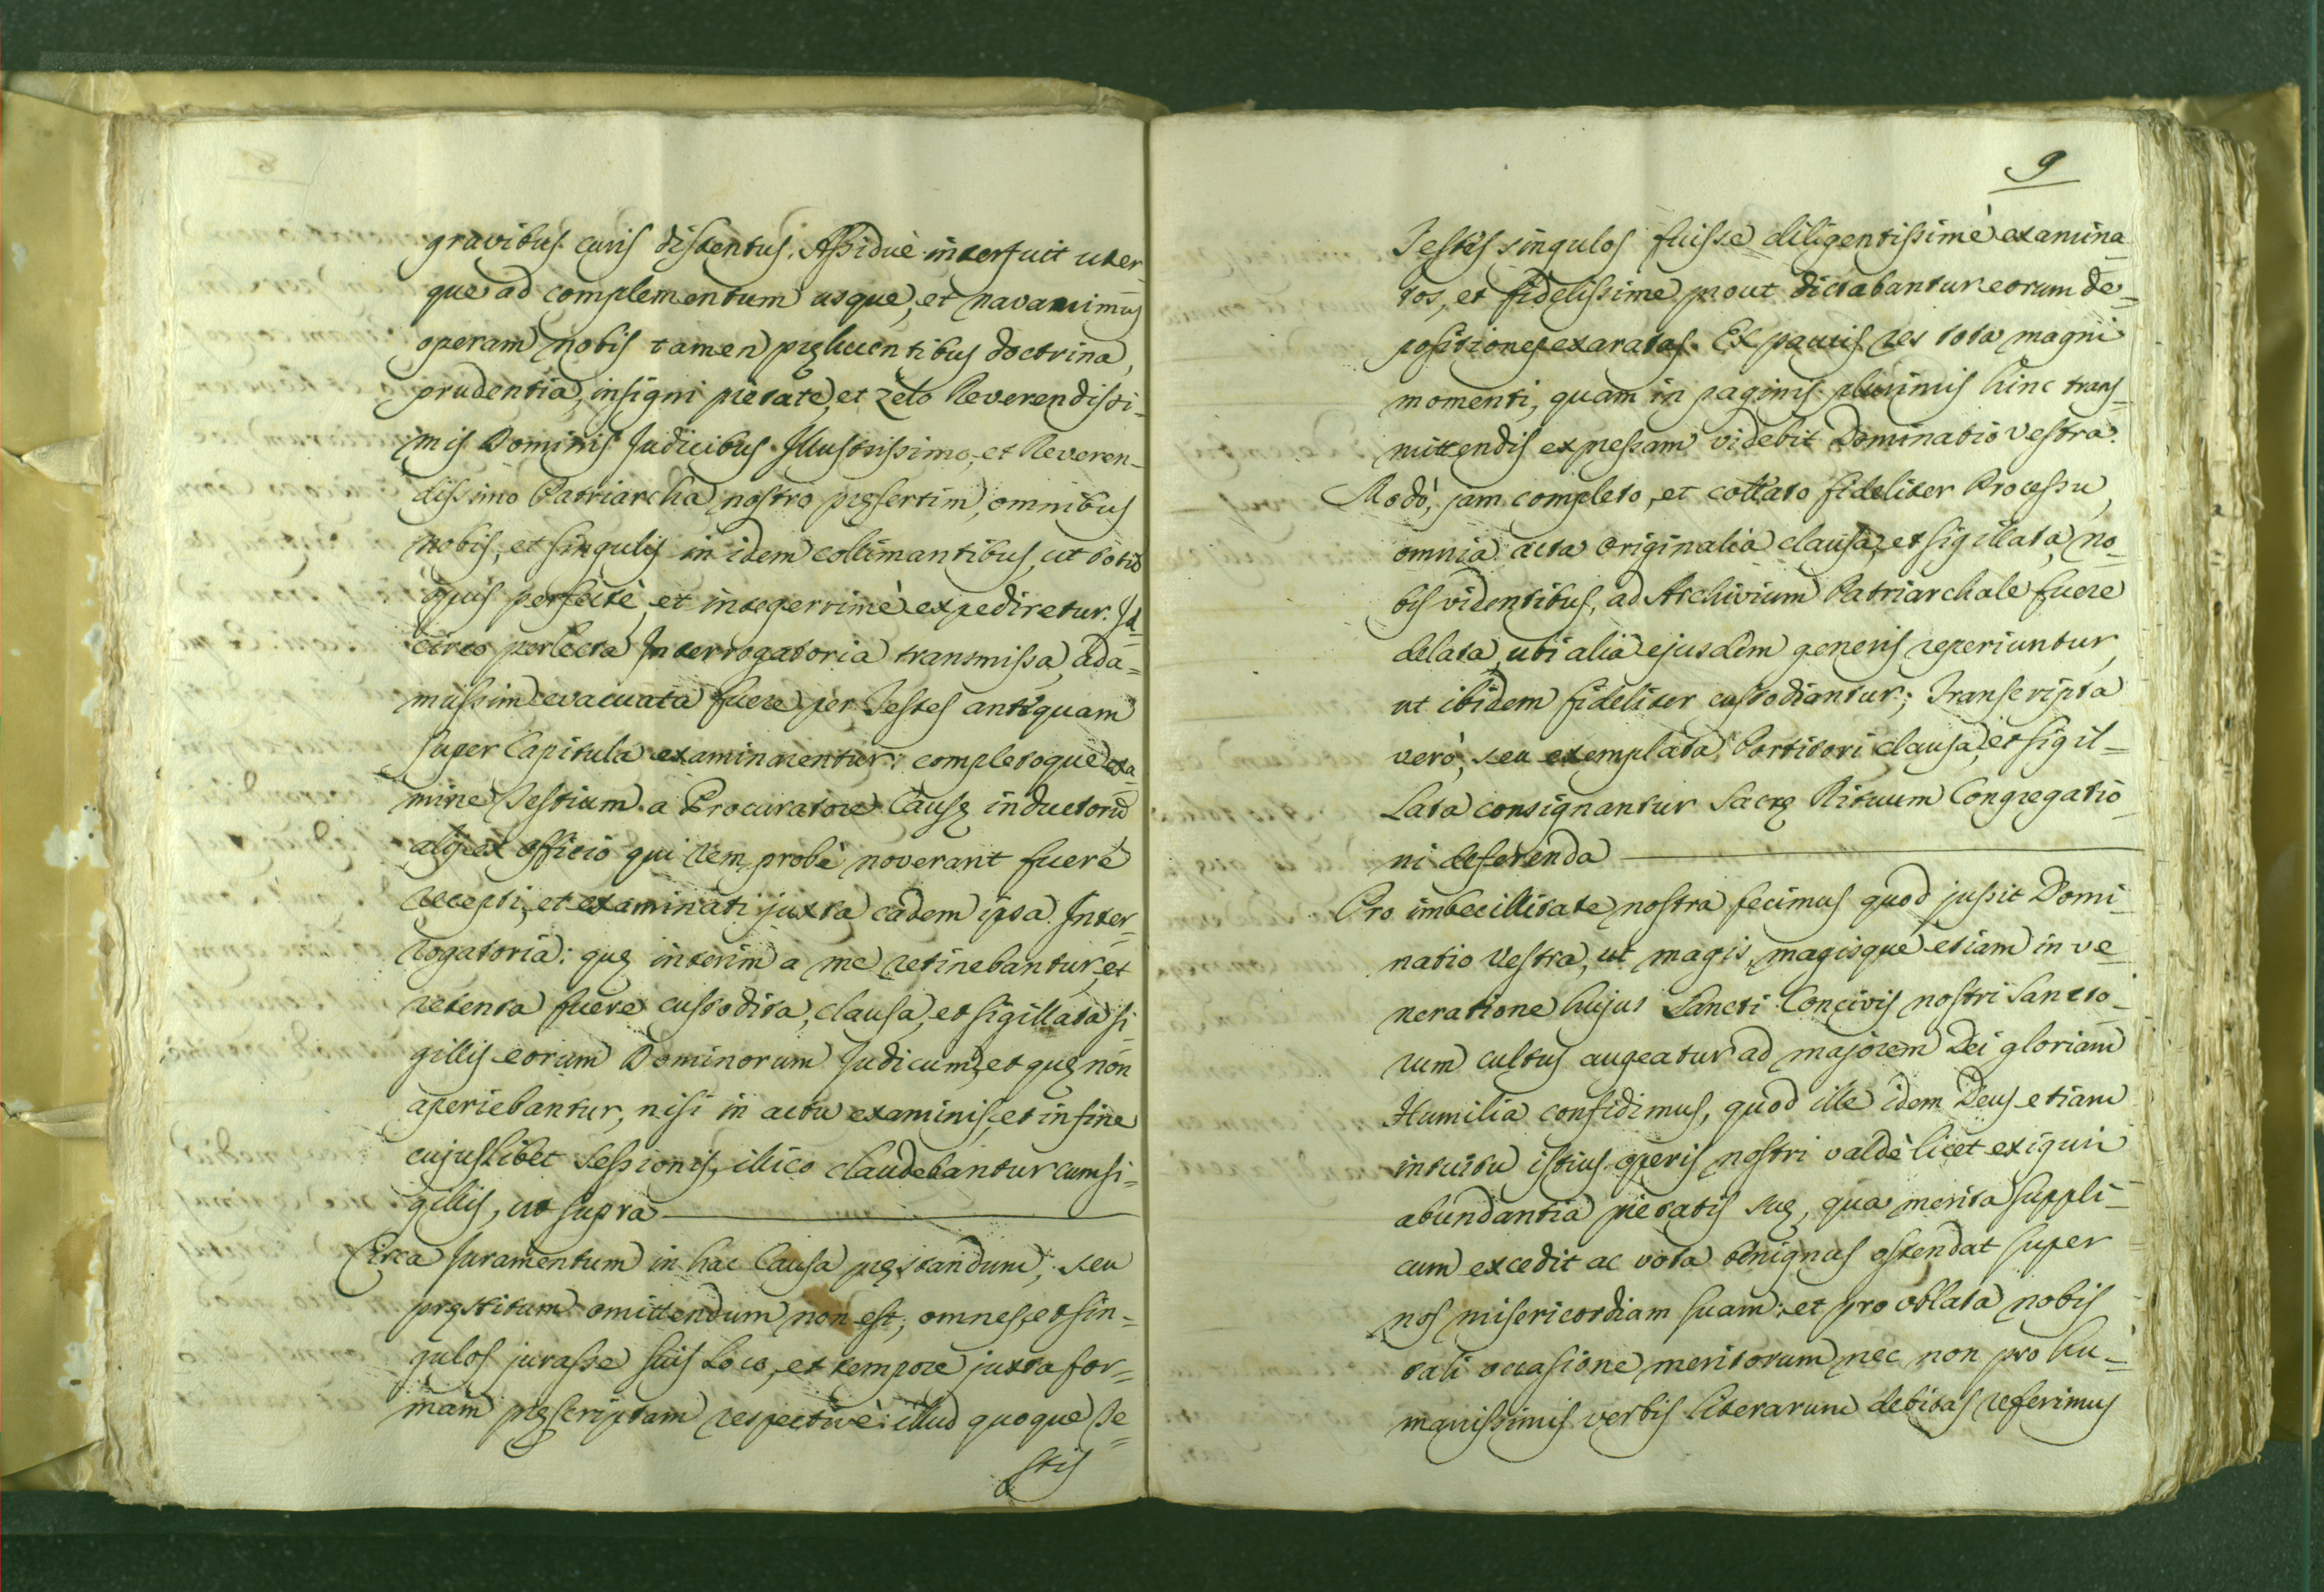 gravibus curis distentus. Assiduè interfuit uter
que ad complementum usque, et navavimus
operam nobis tamen pręlucentibus doctrina,
prudentia, insigni pietate, et zelo Reverendissi-
mis Dominis Judicibus Illustrissimo, et Reveren-
dissimo Patriarcha nostro pręsertim, omnibus
nobis, et singulis in idem collimantibus, ut
opus perfectè, et integerrimè expediretur. Id-
circo perlecta Interrogatoria transmissa, ada-
mussim evacuata fuere per Testes antequam
super Capitula examinarentur: completoque exa
mine Testium a Procuratore Causę inductorũ
alij ex officio qui rem probè noverant fuere
recepti, et examinati juxta eadem ipsa Inter-
rogatoria: quę interim a me retinebantur, et
retenta fuere custodita, clausa, et sigillata si-
gillis eorum Dominorum Judicum, et quę non
aperiebantur, nisi in actu examinis, et in fine
cujuslibet Sessionis, illico claudebantur cum si-
gillis, ut supra
Circa Juramentum in hac Causa pręstandum, seu
pręstitum omittendum non est, omnes, et sin-
gulos jurasse suis loco, et tempore juxta for-
mam pręscriptam respectivè: illud quoque Te-
stis
9
Testes singulos fuisse diligentissimè examina
tos, et fidelissime prout dictabantur eorum de-
positiones exaratas. Ex paucis res tota magni
momenti, quam in paginis plurimis hinc trans-
mittendis expressam videbit Dominatio Vestra.
Modò, jam completo, et collato fideliter Processu,
omnia acta originalia clausa, et sigillata, no-
bis videntibus, ad Archivium Patriarchale fuere
delata, ubi alia ejusdem generis reperiuntur,
ut ibidem fideliter custodiantur; Transcripta
verò, seu exemplata Portitori clausa, et sigil-
lata consignantur Sacrę Rituum Congregatio-
ni deferenda
Pro imbecillitate nostra fecimus quod jussit Domi-
natio Vestra, ut magis, magisque etiam in ve-
neratione hujus Sancti Concivis nostri Sancto-
rum cultus augeatur ad majorem Dei gloriam
Humilia confidimus, quod ille idem Deus etiam
intuitu istius operis nostri valdè licet exigui
abundantia pietatis suę, qua merita suppli-
cum excedit ac vota benignus ostendat super
nos misericordiam suam: et pro oblata nobis
tali occasione meritorum nec non pro hu-
manissimis verbis literarum debitas referimus